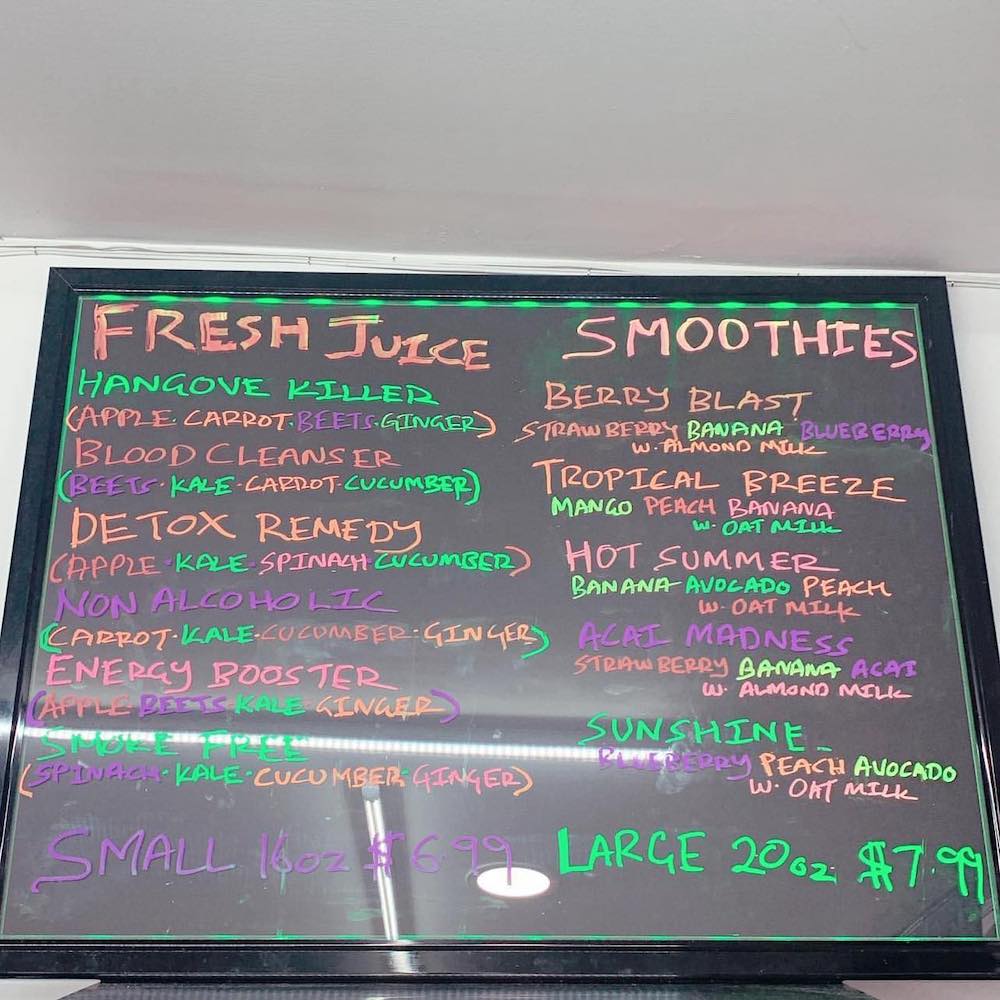 FRESH JUICE
HANGOVE KILLER
(APPLE·CARROT·BEETS·GINGER)
BLOOD CLEANSER
(BEETS·KALE·CARROT·CUCUMBER)
DETOX REMEDY
(APPLE·KALE·SPINACH·CUCUMBER)
NON ALCOHOLIC
(CARROT·KALE·CUCUMBER·GINGER)
ENERGY BOOSTER
(APPLE·BEETS·KALE·GINGER)
SMOKE FREE
(SPINACH·KALE·CUCUMBER·GINGER)
SMALL 16oz $6.99
SMOOTHIES
BERRY BLAST
STRAWBERRY BANANA BLUEBERRY
W. ALMOND MILK
TROPICAL BREEZE
MANGO PEACH BANANA
W. OAT MILK
HOT SUMMER
BANANA AVOCADO PEACH
W. OAT MILK
ACAI MADNESS
STRAWBERRY BANANA ACAI
W. ALMOND MILK
SUNSHINE
BLUEBERRY PEACH AVOCADO
W. OAT MILK
LARGE 20oz $7.99